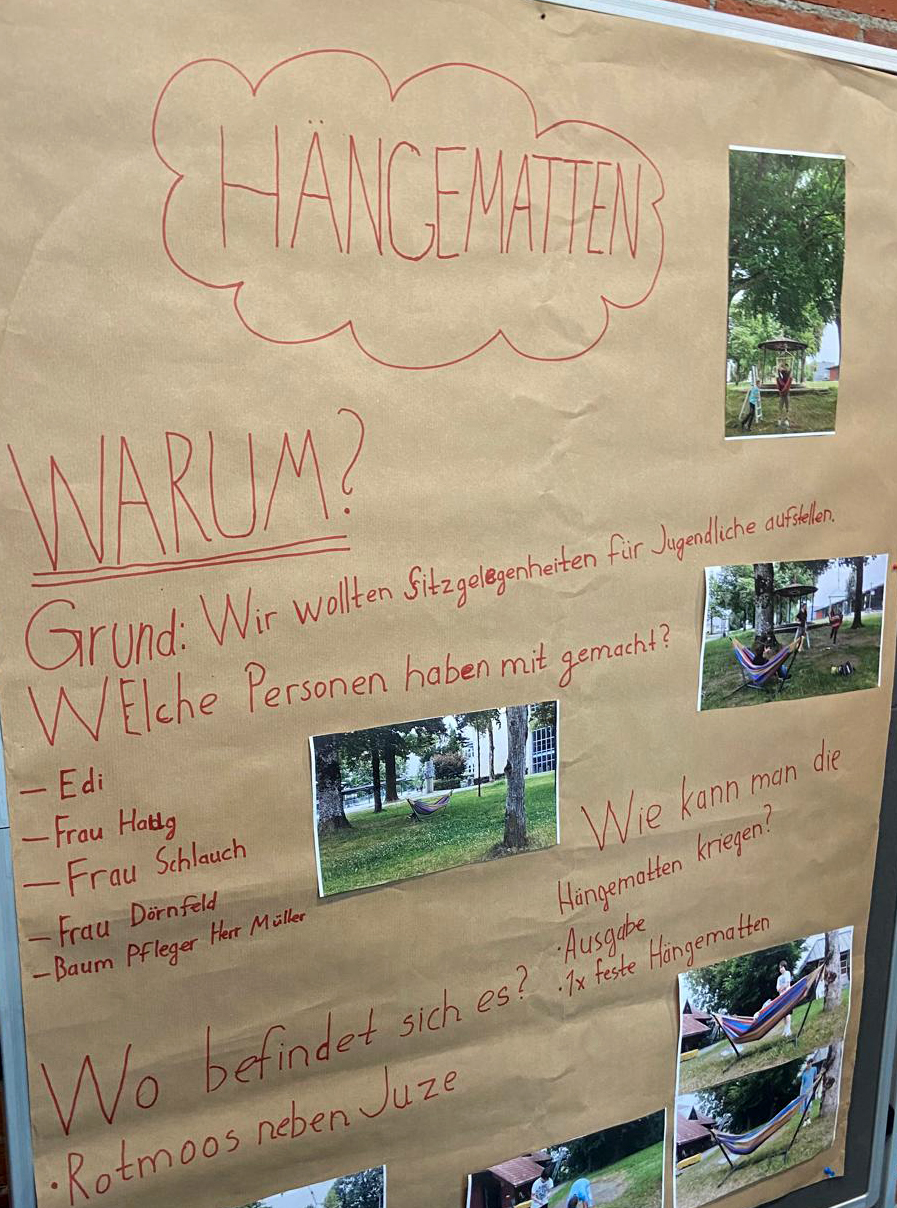 HÄNGEMATTEN
WARUM?
Grund: Wir wollten Sitzgelegenheiten für Jugendliche aufstellen.
WElche Personen haben mit gemacht?
– Edi
– Frau
– Frau Schlauch
– Frau Dörnfeld
– Baum Pfleger Herr Müller
Wie kann man die
Hängematten kriegen?
· Ausgabe
· 1x feste Hängematten
Wo befindet sich es?
· Rotmoos neben Juze